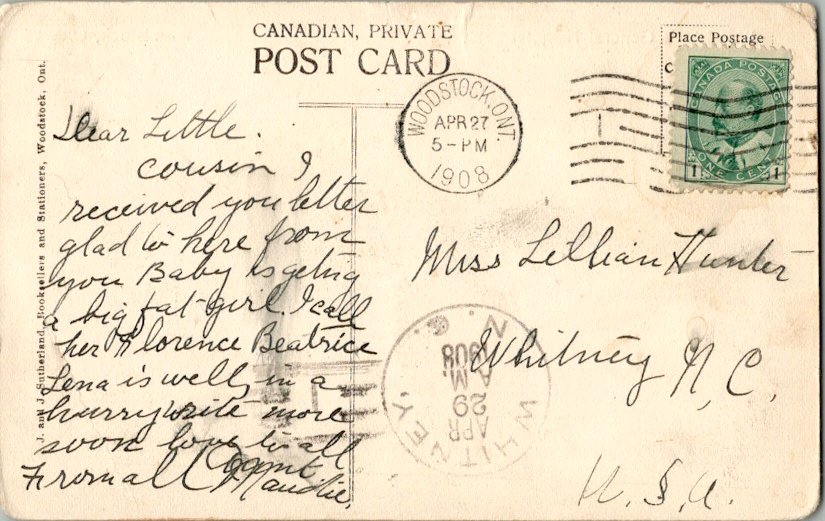 CANADIAN, PRIVATE
POST CARD
Place Postage
C
CANADA POSTAGE
1 1
ONE CENT
WOODSTOCK, ONT.
APR 27
5-PM
1908
J. and J. Sutherland, Booksellers and Stationers, Woodstock, Ont.
Dear Little.
cousin I
received you letter
glad to here from
you Baby is geting
a big fat girl. I call
her Florence Beatrice
Lena is well, in a
hurry write more
soon love to all
From all
Maudie.
Miss Lillian Hunter
Whitney N.C.
U.S.A.
WHITNEY. N.C.
APR
29
A.M.
1908